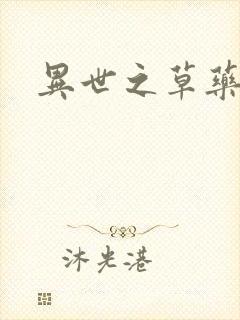 異世之草藥
沐光港